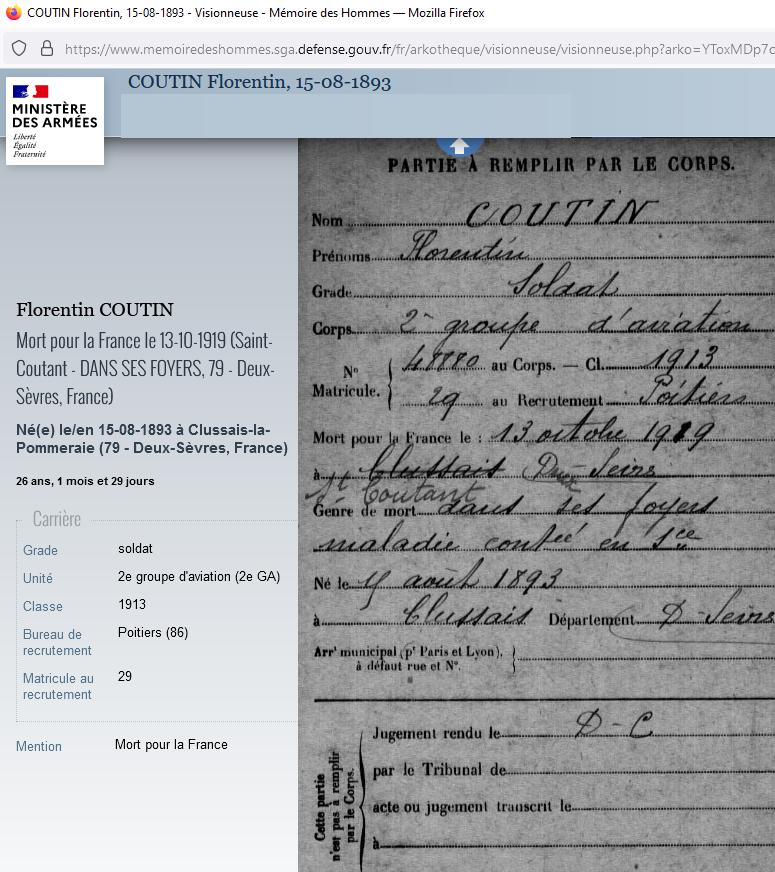 COUTIN Florentin, 15-08-1893 - Visionneuse - Mémoire des Hommes — Mozilla Firefox
https://www.memoiredeshommes.sga.defense.gouv.fr/fr/arkotheque/visionneuse/visionneuse.php?arko=YToxMDp7c
COUTIN Florentin, 15-08-1893
MINISTÈRE
DES ARMÉES
Liberté
Égalité
Fraternité
Florentin COUTIN
Mort pour la France le 13-10-1919 (Saint-
Coutant - DANS SES FOYERS, 79 - Deux-
Sèvres, France)
Né(e) le/en 15-08-1893 à Clussais-la-
Pommeraie (79 - Deux-Sèvres, France)
26 ans, 1 mois et 29 jours
Carrière
Grade soldat
Unité 2e groupe d'aviation (2e GA)
Classe 1913
Bureau de recrutement Poitiers (86)
Matricule au recrutement 29
Mention Mort pour la France
PARTIE À REMPLIR PAR LE CORPS.
Nom COUTIN
Prénoms Florentin
Grade Soldat
Corps 2e groupe d'aviation
Nº Matricule.
au Corps. — Cl. 1913
29 au Recrutement Poitiers
Mort pour la France le : 13 octobre 1919
à Clussais Deux Sèvres
St Coutant
Genre de mort dans ses foyers
maladie contée en sce
Né le août 1893
à Clussais Département D-Sèvres
Arrt municipal (pr Paris et Lyon),
à défaut rue et Nº.
Cette partie
n'est pas à remplir
par le Corps.
Jugement rendu le D-C
par le Tribunal de
acte ou jugement transcrit le
à